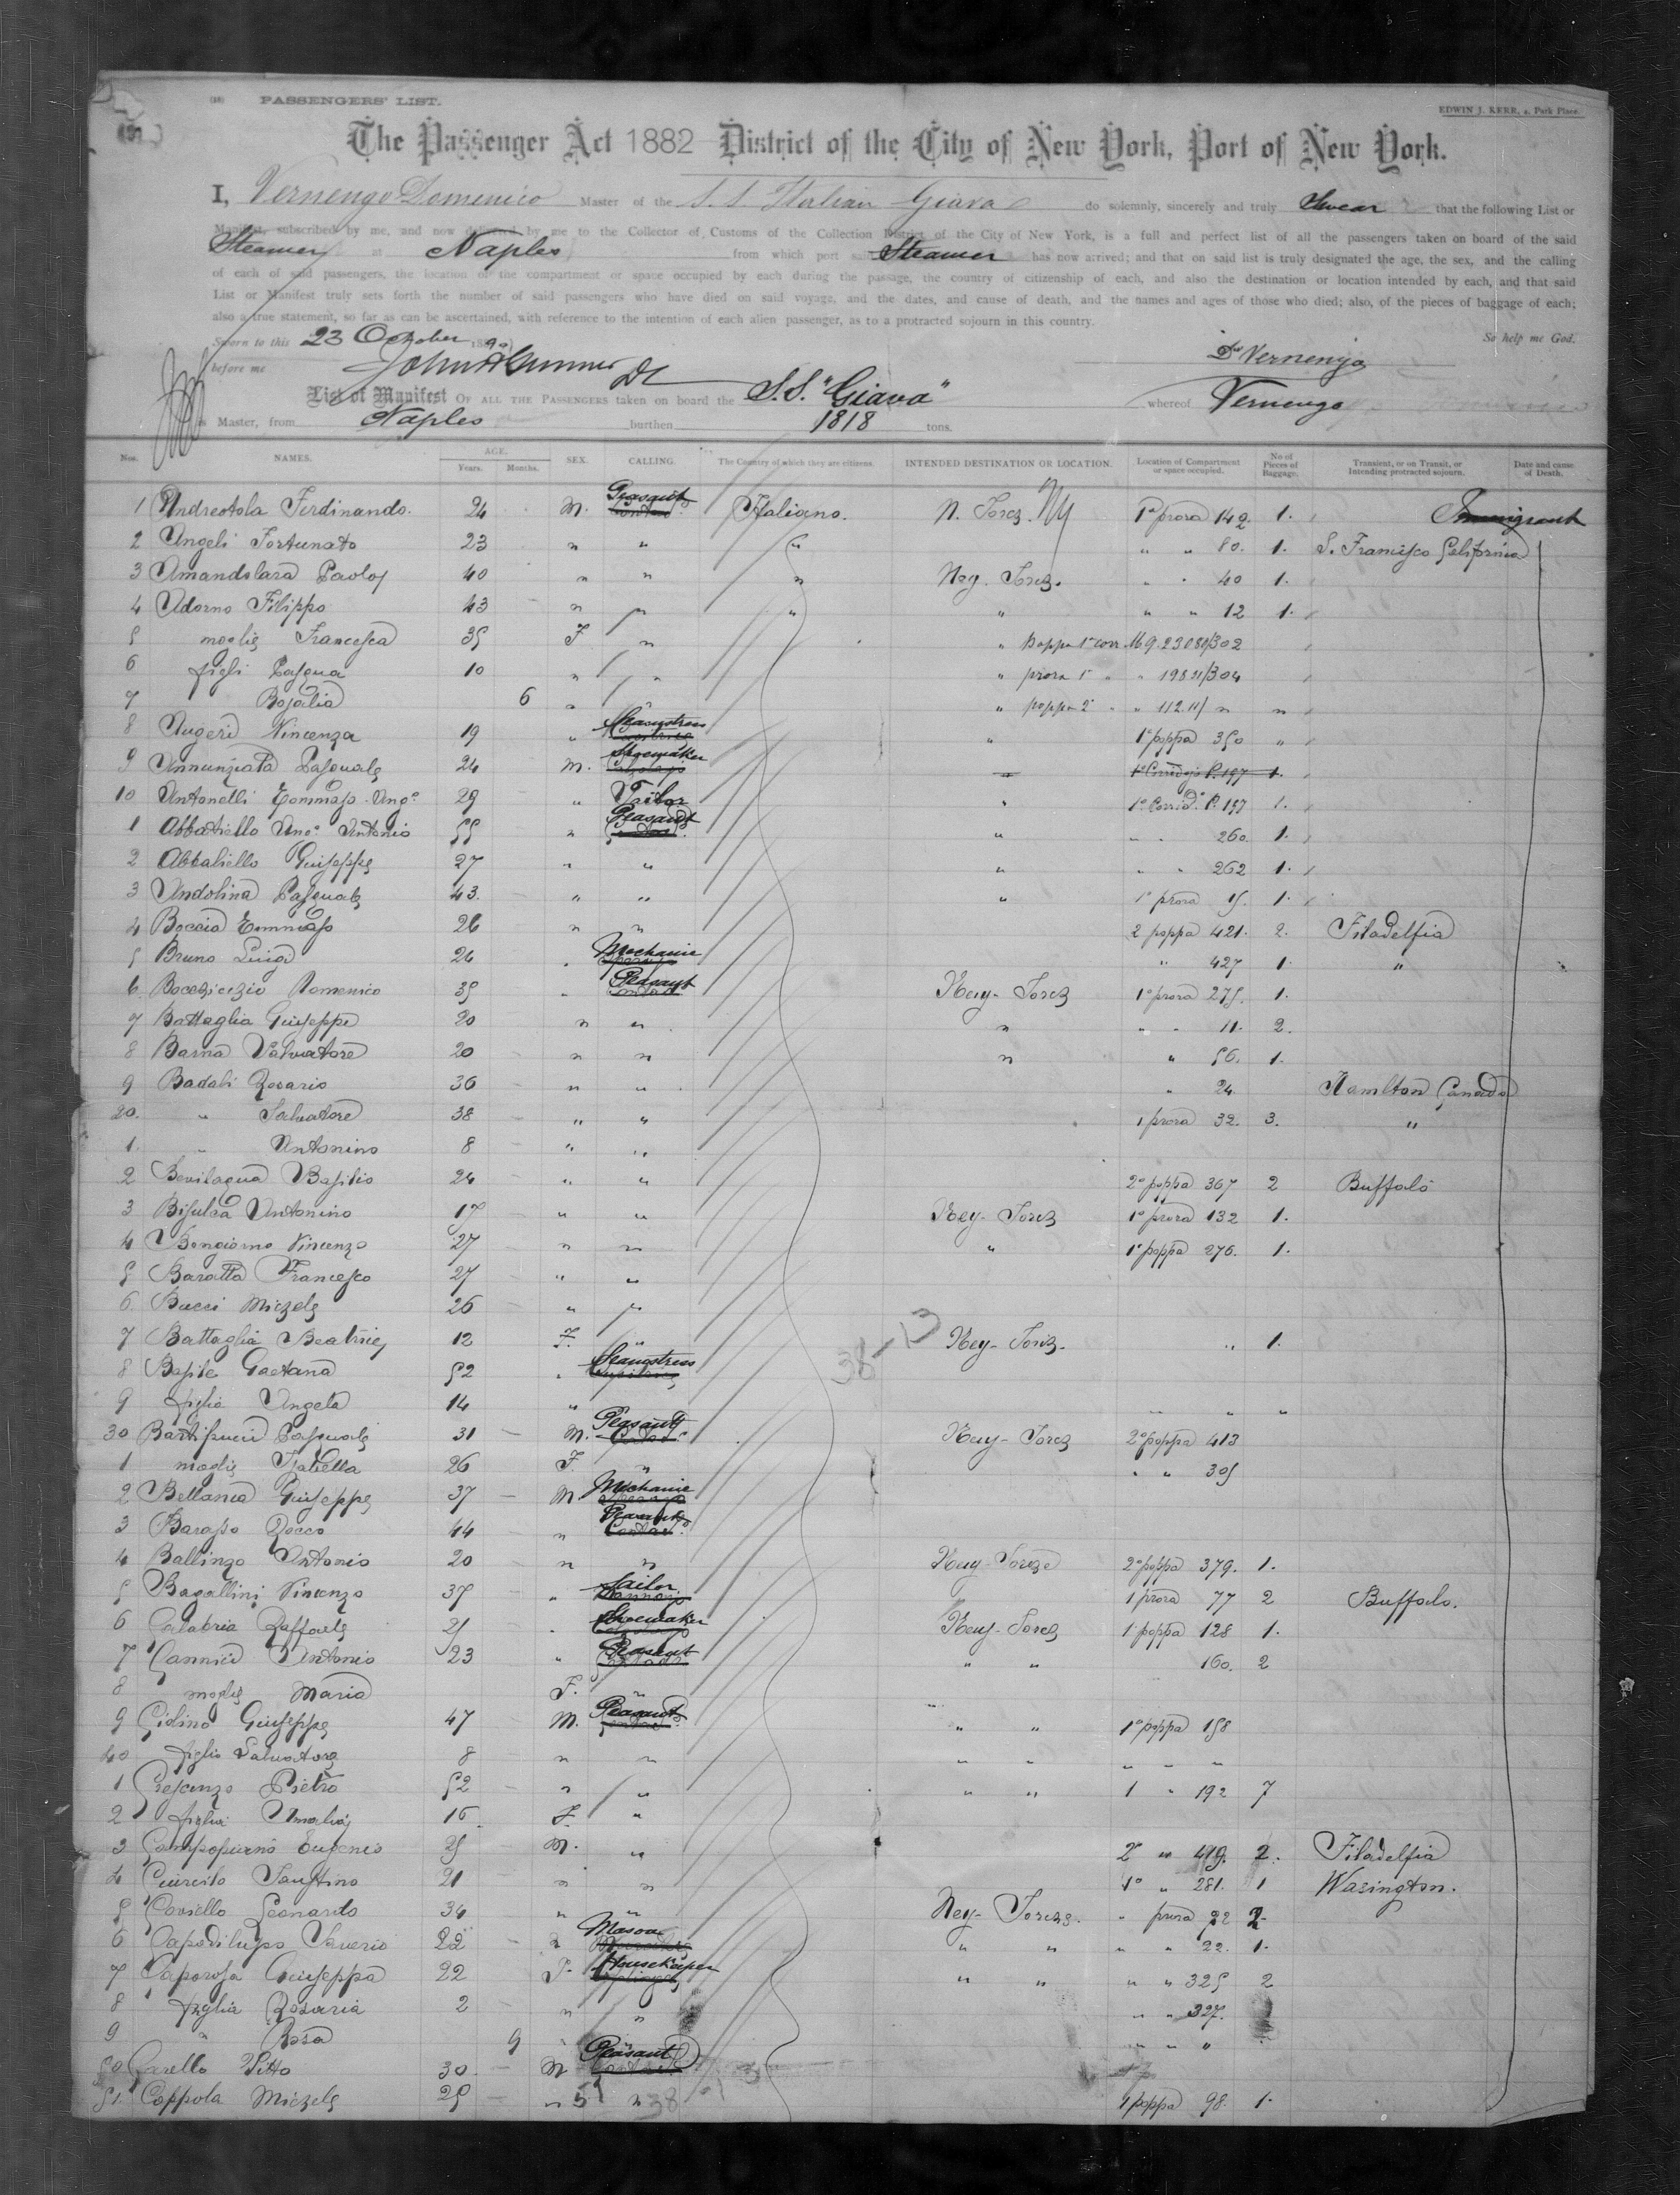 (18) PASSENGERS' LIST.
EDWIN J. KERR, 4, Park Place.
The Passenger Act 1882 District of the City of New York, Port of New York.
I, Vernengo Domenico Master of the S.S. Italian Giava do solemnly, sincerely and truly Swear that the following List or
Manifest, subscribed by me, and now delivered by me to the Collector of Customs of the Collection District of the City of New York, is a full and perfect list of all the passengers taken on board of the said
Steamer at Naples from which port said Steamer has now arrived; and that on said list is truly designated the age, the sex, and the calling
of each of said passengers, the location of the compartment or space occupied by each during the passage, the country of citizenship of each, and also the destination or location intended by each, and that said
List or Manifest truly sets forth the number of said passengers who have died on said voyage, and the dates, and cause of death, and the names and ages of those who died; also, of the pieces of baggage of each;
also a true statement, so far as can be ascertained, with reference to the intention of each alien passenger, as to a protracted sojourn in this country.
Sworn to this 23 October 1890 So help me God.
before me Vernengo
List or Manifest OF ALL THE PASSENGERS taken on board the S.S. "Giava" whereof Vernengo
is Master, from Naples burthen 1818 tons.
Nos. NAMES. AGE. Years. Months. SEX. CALLING. The Country of which they are citizens. INTENDED DESTINATION OR LOCATION. Location of Compartment or space occupied. No of Pieces of Baggage. Transient, or on Transit, or Intending protracted sojourn. Date and cause of Death.
1 Andreotola Ferdinando. 24 M. Peasant Italiano. N. Jorck. NY 1a prora 142. 1. Immigrant
2 Angeli Fortunato 23 " " " " " 80. 1. S. Francisco California
3 Amandolara Paolo 40 " " " Ney. Jorck. " " 40 1.
4 Adorno Filippo 43 " " " " " " 12 1.
5 moglie Francesca 35 F " "
6 figli Pasqua 10 " " " prora
7 Rosalia 6 " " " poppa " "
8 Augeri Vincenza 19 " Seamstress " 1a poppa 350 "
9 Annunziata Pasquale 24 M. Shoemaker 1o Corridojo P. 197 1.
10 Antonelli Tommaso Ango 29 " Tailor " 1o Corrid. P. 197 1.
1 Abbatiello Ango Antonio 55 " Peasant " " " 260. 1.
2 Abbatiello Giuseppe 27 " " " " " 262 1.
3 Andolina Pasquale 43. " " " 1a prora 15. 1.
4 Boccia Tommaso 26 " " 2 poppa 421. 2. Filadelfia
5 Bruno Luigi 24 " Mechanic " 427 1. "
6 Domenico 35 " Peasant Ney- Jorck 1a prora 275. 1.
7 Battaglia Giuseppe 20 " " " " " 11. 2.
8 Barna Salvatore 20 " " " " 56. 1.
9 Badali Rosario 36 " " " 24. Hamilton Canada
20. " Salvatore 38 " " 1 prora 32. 3. "
1. " Antonino 8 " "
2 Bevilaqua Basilio 24 " " 2a poppa 367 2 Buffalo
3 Bisulca Antonino 17 " " Ney- Jorck 1a prora 132 1.
4 Bongiorno Vincenzo 27 " " " 1a poppa 276. 1.
5 Baratta Francesco 27 " "
6. Bucci Michele 26 " "
7 Battaglia Beatrice 12 F. " Ney- Jorck. " 1.
8 Basile Gaetana 52 " Seamstress
9 figlia Angela 14 " " " "
30 Pasquale 31 M. Peasant Ney- Jorck 2a poppa 413
1 moglie Isabella 26 F. " " " 305
2 Bellania Giuseppe 37 M. Mechanic
3 Rocco 44 " Peasant
4 Ballinzo Antonio 20 " " Ney- Jorck 2a poppa 379. 1.
5 Bagallini Vincenzo 37 " Sailor 1 prora 77 2 Buffalo.
6 Calabria Raffaele 21 " Shoemaker Ney- Jorck 1 poppa 128 1.
7 Antonio 23 " Peasant " " 160. 2
8 moglie Maria F. "
9 Ciolino Giuseppe 47 M. Peasant " " 1a poppa 158
40 figlio Salvatore 8 " " " " " " "
1 Crescenzo Pietro 52 " " " " 1 " 192 7
2 figlia Amalia 16 F. "
3 Eugenio 25 M. " 2 " 419. 2. Filadelfia
4 21 " " 1a " 281. 1 Wasington.
5 Coviello Leonardo 34 " " Ney- Jorck. " prora 22 2
6 Capodilupo Saverio 22 " Mason " " " " 22. 1.
7 Caporosa Giuseppa 22 F. Housekeeper " " " " 325 2
8 figlia Rosaria 2 " " " " 327.
9 " Rosa 9 " " " "
50 Carello Vitto 30. M Peasant
51. Coppola Michele 25 " " 1 poppa 98. 1.